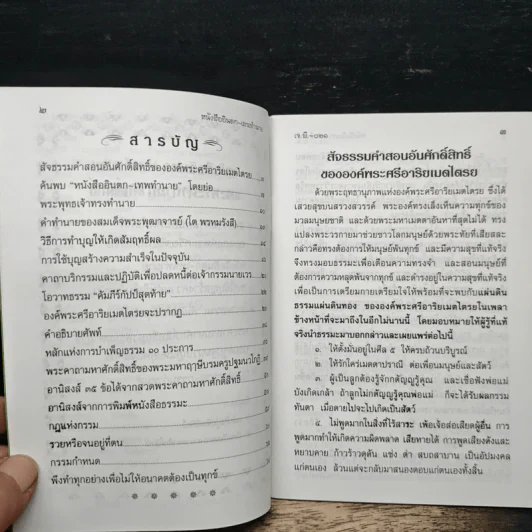 ๒
หนังสืออินตก-เทพทำนาย
สารบัญ
สัจธรรมคำสอนอันศักดิ์สิทธิ์ขององค์พระศรีอาริยเมตไตรย
ค้นพบ "หนังสืออินตก-เทพทำนาย" โดยย่อ
พระพุทธเจ้าทรงทำนาย
คำทำนายของสมเด็จพระพุฒาจารย์ (โต พรหมรังสี)
วิธีการทำบุญให้เกิดสัมฤทธิ์ผล
การใช้บุญสร้างความสำเร็จในปัจจุบัน
คาถาบริกรรมและปฏิบัติเพื่อปลดหนี้ต่อเจ้ากรรมนายเวร
โอวาทธรรม "คัมภีร์กัปป์สุดท้าย"
องค์พระศรีอาริยเมตไตรยจะปรากฏ
คำอธิบายศัพท์
หลักแห่งการบำเพ็ญธรรม ๑๐ ประการ
พระคาถามหาศักดิ์สิทธิ์ของพระมหาฤาษีบรมครูปฐมนวโกฏิ
อานิสงส์ ๓๕ ข้อได้จากสวดพระคาถามหาศักดิ์สิทธิ์
อานิสงส์จากการพิมพ์หนังสือธรรมะ
กฎแห่งกรรม
รวยหรือจนอยู่ที่ตน
กรรมกำหนด
พึงทำทุกอย่างเพื่อไม่ให้อนาคตต้องเป็นทุกข์
๓
สัจธรรมคำสอนอันศักดิ์สิทธิ์
ขององค์พระศรีอาริยเมตไตรย
ด้วยพระฤทธานุภาพแห่งองค์พระศรีอาริยเมตไตรย ซึ่งได้
เสวยสุขบนสรวงสวรรค์ พระองค์ทรงเล็งเห็นความทุกข์ของ
มวลมนุษยชาติ และด้วยพระมหาเมตตาอันหาที่สุดไม่ได้ ทรง
แปลงพระวรกายมาช่วยชาวโลกมนุษย์ด้วยพระทัยที่เสียสละ
กล่าวคือทรงต้องการให้มนุษย์พ้นทุกข์ และมีความสุขที่แท้จริง
จึงทรงมอบธรรมะเพื่อเตือนความทรงจำ และสอนมนุษย์ที่
ต้องการความหลุดพ้นจากทุกข์ และดำรงอยู่ในความสุขที่แท้จริง
เพื่อเป็นการเตรียมกายเตรียมใจให้พร้อมที่จะพบกับแผ่นดิน
ธรรมแผ่นดินทอง ขององค์พระศรีอาริยเมตไตรยในเพลา
ข้างหน้าที่จะมาถึงในอีกไม่นานนี้ โดยมอบหมายให้ผู้รู้ที่แท้
จริงนำธรรมะมาบอกกล่าวและเผยแพร่ต่อไปนี้
๑. ให้ตั้งมั่นอยู่ในศีล ๕ ให้ครบถ้วนบริบูรณ์
๒. ให้รักใคร่เมตตาปราณี ต่อเพื่อนมนุษย์และสัตว์
๓. ผู้เป็นลูกต้องรู้จักกตัญญูรู้คุณ และเชื่อฟังพ่อแม่
บังเกิดเกล้า ถ้าลูกไม่กตัญญูรู้คุณพ่อแม่ ก็จะได้รับผลกรรม
ทันตา เมื่อตายไปจะไปเกิดเป็นสัตว์
๔. ไม่พูดมากในสิ่งที่ไร้สาระ พ้อเจ้อส่อเสียดผู้อื่น การ
พูดมากทำให้เกิดความผิดพลาด เสียหายได้ การพูดเสียงดังและ
หยาบคาย ก้าวร้าวดุดัน แช่ง ด่า สบถสาบาน เป็นอัปมงคล
แก่ตนเอง ล้วนแต่จะกลับมาสนองตอบแก่ตนเองทั้งสิ้น